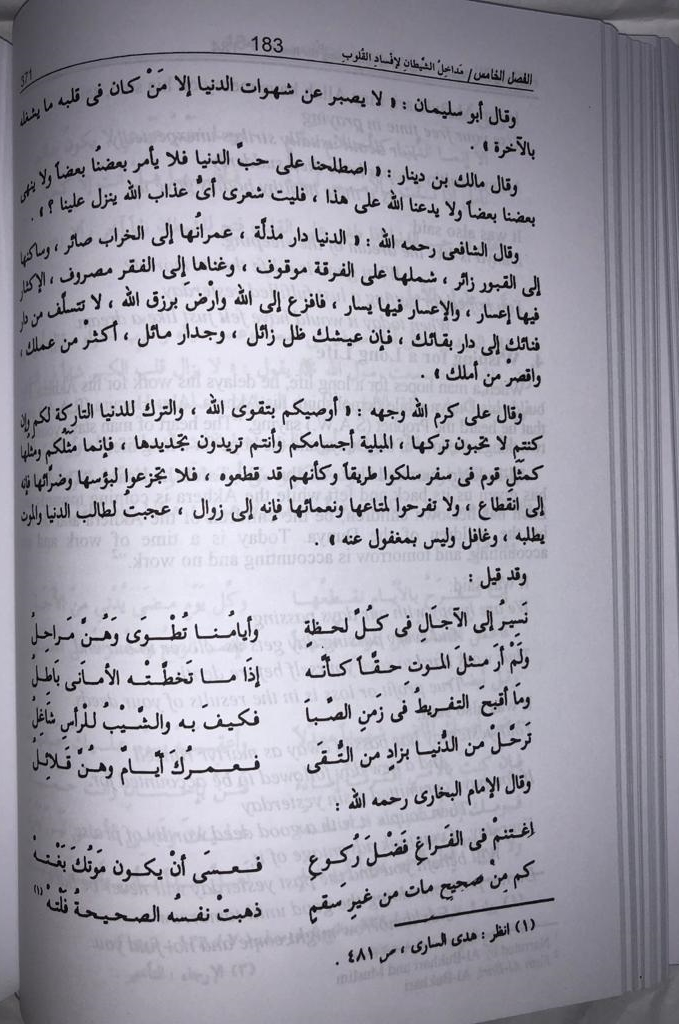 183
الفصل الخامس / مَداخِلُ الشيطانِ لإفسادِ القلوبِ
وقال أبو سليمان : « لا يصبر عن شهوات الدنيا إلا مَنْ كان فى قلبه ما يشغله
بالآخرة » .
وقال مالك بن دينار : « اصطلحنا على حبِّ الدنيا فلا يأمر بعضُنا بعضاً ولا ينهى
بعضنا بعضاً ولا يدعنا الله على هذا ، فليت شعرى أىُّ عذاب الله ينزل علينا ؟ » .
وقال الشافعى رحمه الله : « الدنيا دار مذلّة ، عمرانُها إلى الخراب صائر ، وساكنها
إلى القبور زائر ، شملها على الفرقة موقوف ، وغناها إلى الفقر مصروف ، الإكثار
فيها إعسار ، والإعسار فيها يسار ، فافزع إلى الله وارْضَ برزق الله ، لا تتسلَّف من دار
فنائك إلى دار بقائك ، فإن عيشك ظل زائل ، وجدار مائل ، أكثرْ من عملك ،
واقصرْ من أملك » .
وقال على كرم الله وجهه : « أوصيكم بتقوى الله ، والترك للدنيا التاركة لكم وإن
كنتم لا تحبون تركها ، المبلية أجسامكم وأنتم تريدون تجديدها ، فإنما مثلُكم ومثلُها
كمثَلِ قوم فى سفر سلكوا طريقاً وكأنهم قد قطعوه ، فلا تجزعوا لبؤسها وضرَّائها فإنه
إلى انقطاع ، ولا تفرحوا لمتاعها ونعمائها فإنه إلى زوال ، عجبت لطالب الدنيا والموت
يطلبه ، وغافل وليس بمغفول عنه » .
وقد قيل :
نَسيرُ إلى الآجالِ فى كُلِّ لحظةٍ وأيامُنا تُطْوَى وَهُنَّ مَراحِلُ
ولَمْ أرَ مثلَ الموتِ حقًّا كأنَّه إذَا ما تَخطَّتْه الأمانى بَاطِلُ
ومَا أقبحَ التفريطَ فى زمن الصِّبَا فكيفَ به والشَّيْبُ للرأسِ شَاغِلُ
تَرحَّلْ من الدُّنيا بزاد من التُّقَى فعمرُكَ أيَّامٌ وهُنَّ قَلائلُ
وقال الإمام البخارى رحمه الله :
اغتنمْ فى الفراغِ فَضْلَ رُكُوعٍ فعسَى أنْ يكون مَوتُكَ بَغْتهْ
كم مِنْ صحيحٍ مات من غيرِ سَقمٍ ذهبتْ نفسُه الصحيحةُ فَلْتهْ (١)
(١) انظر : هدى السارى ، ص ٤٨١ .